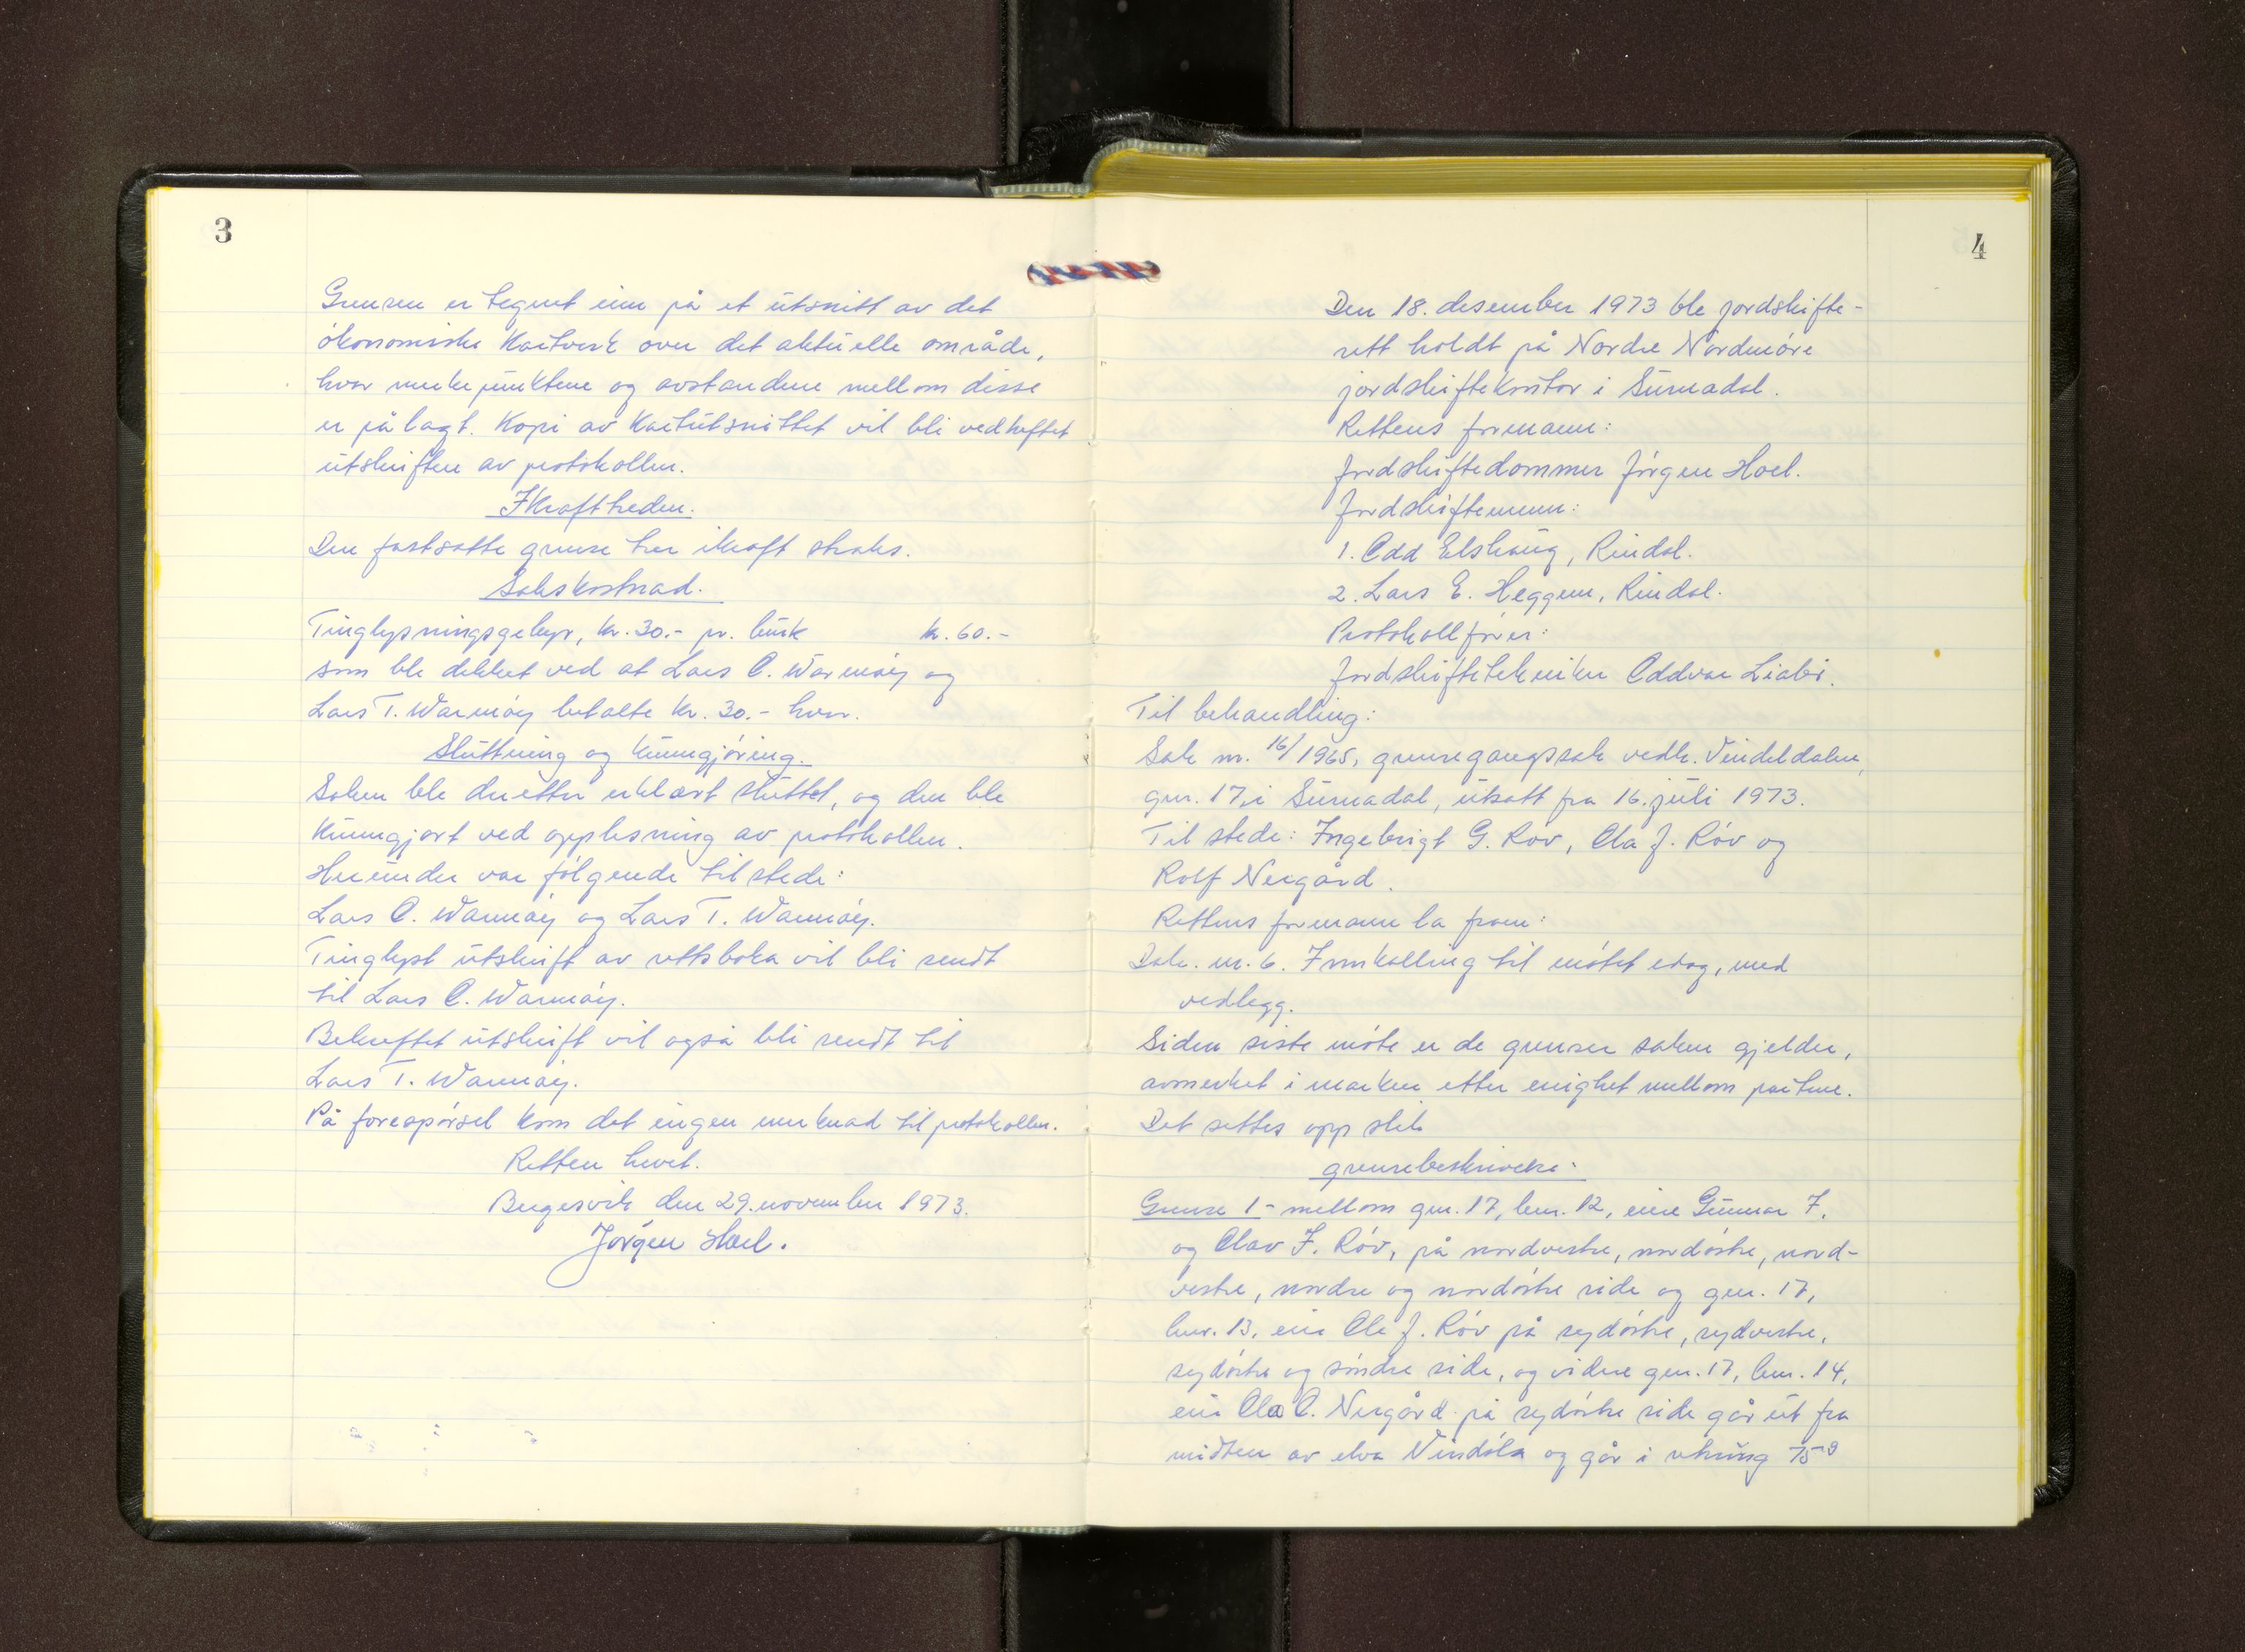 3
Grensen er tegnet inn på et utsnitt av det
økonomiske kartverk over det aktuelle område,
hvor merkepunktene og avstandene mellom disse
er pålagt. Kopi av kartutsnittet vil bli vedheftet
utskriften av protokollen.
Ikrafttreden.
Den fastsatte grense trer ikraft straks.
Sakskostnad.
Tinglysningsgebyr, kr. 30.- pr. bruk kr. 60.-
som ble dekket ved at Lars O. Warmøy og
Lars T. Warmøy betalte kr. 30.- hver.
Sluttning og kunngjøring.
Saken ble deretter erklært sluttet, og den ble
kunngjort ved opplesning av protokollen.
Herunder var følgende til stede:
Lars O. Warmøy og Lars T. Warmøy.
Tinglyst utskrift av rettsboka vil bli sendt
til Lars O. Warmøy.
Bekreftet utskrift vil også bli sendt til
Lars T. Warmøy.
På forespørsel kom det ingen merknad til protokollen.
Retten hevet.
Bergesvik den 29. november 1973.
Jørgen Hoel.
4
Den 18. desember 1973 ble jordskifte-
rett holdt på Nordre Nordmøre
jordskiftekontor i Surnadal.
Rettens formann:
Jordskiftedommer Jørgen Hoel.
Jordskiftemenn:
1. Odd Elshaug, Rindal.
2. Lars E. Heggem, Rindal.
Protokollfører:
Jordskiftetekniker Oddvar Liabø.
Til behandling:
Sak nr. 16/1965, grensegangssak vedk. Vindeldalen,
gnr. 17 i Surnadal, utsatt fra 16. juli 1973.
Til stede: Ingebrigt G. Røv, Ola J. Røv og
Rolf Nergård.
Rettens formann la fram:
Dok. nr. 6. Innkalling til møtet idag, med
vedlegg.
Siden siste møte er de grenser saken gjelder,
avmerket i marken etter enighet mellom partene.
Det settes opp slik
grensebeskrivelse:
Grense 1 - mellom gnr. 17, bnr. 12, eier Gunnar I.
og Olav I. Røv, på nordvestre, nordøstre, nord-
vestre, nordre og nordøstre side og gnr. 17,
bnr. 13, eier Ola J. Røv på sydøstre, sydvestre,
sydøstre og søndre side, og videre gnr. 17, bnr. 14,
eier Ola O. Nergård på sydøstre side går ut fra
midten av elva Vindøla og går i retning 75g